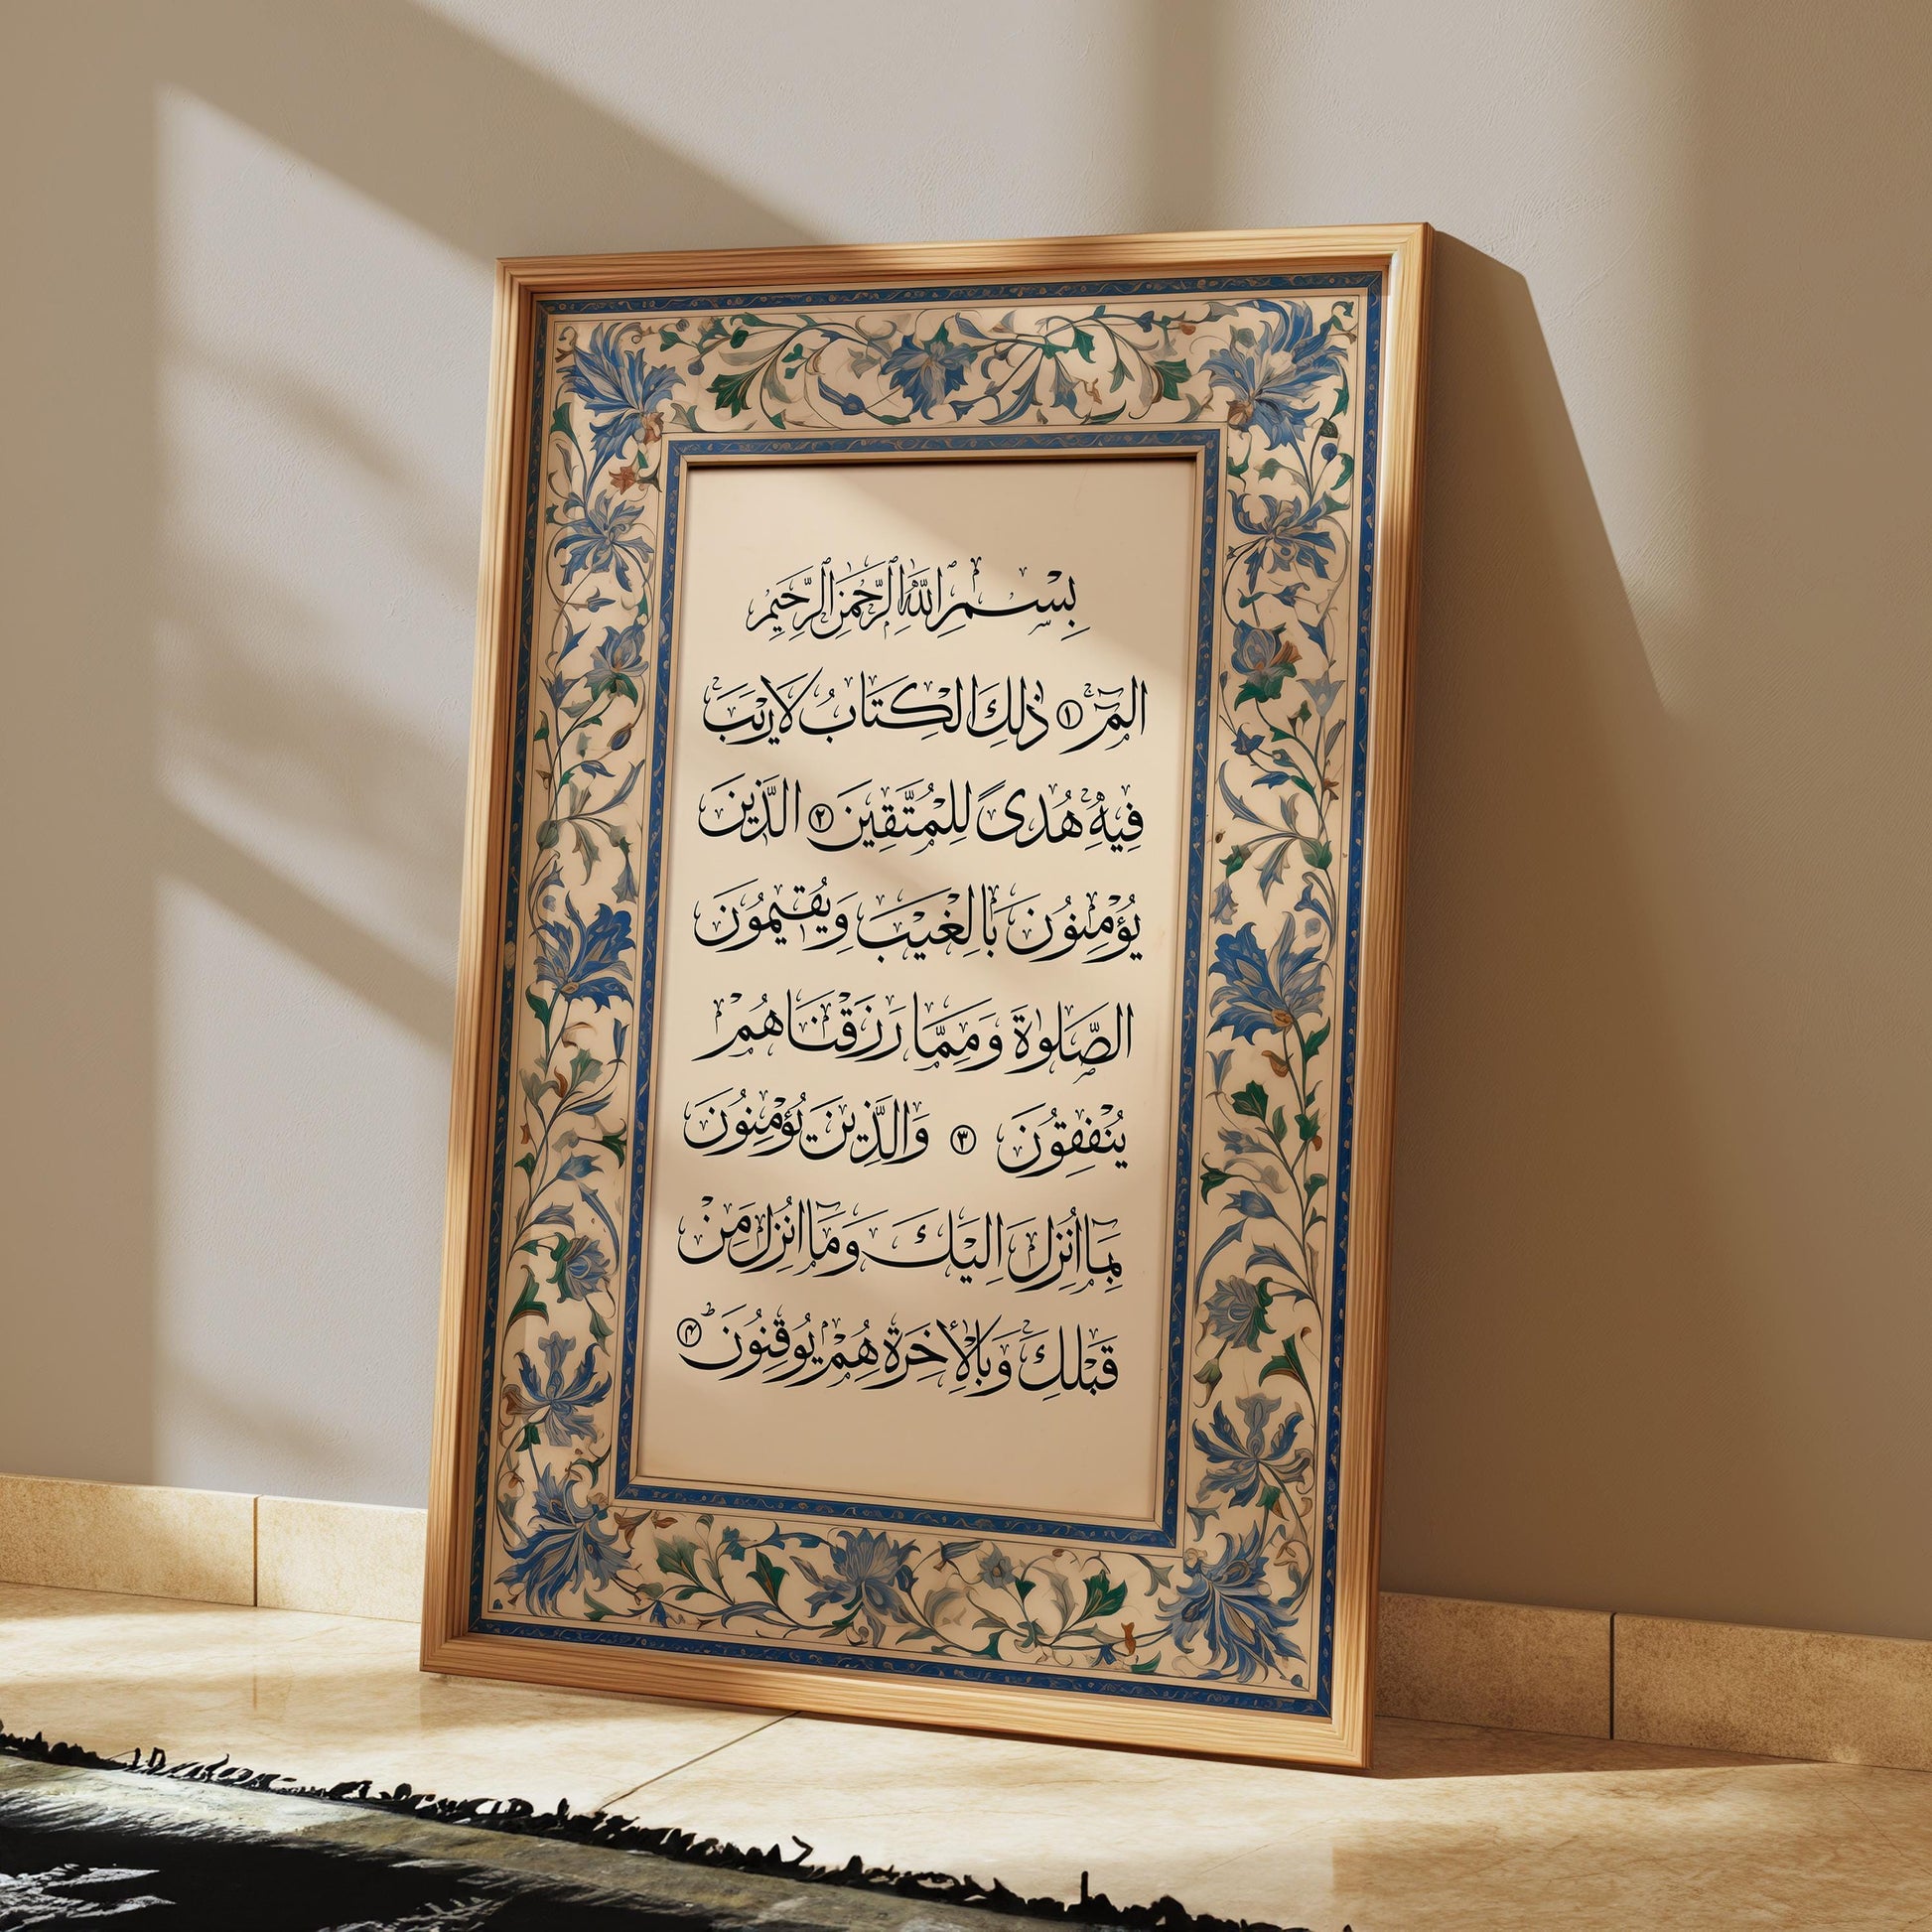 بِسْمِ اللَّهِ الرَّحْمَنِ الرَّحِيمِ
الٓمٓ ١ ذٰلِكَ الْكِتَابُ لَا رَيْبَ
فِيهِ هُدًى لِلْمُتَّقِينَ ٢ الَّذِينَ
يُؤْمِنُونَ بِالْغَيْبِ وَيُقِيمُونَ
الصَّلٰوةَ وَمِمَّا رَزَقْنَاهُمْ
يُنْفِقُونَ ٣ وَالَّذِينَ يُؤْمِنُونَ
بِمَٓا اُنْزِلَ اِلَيْكَ وَمَٓا اُنْزِلَ مِنْ
قَبْلِكَ وَبِالْأَخِرَةِ هُمْ يُوقِنُونَ ط ٤